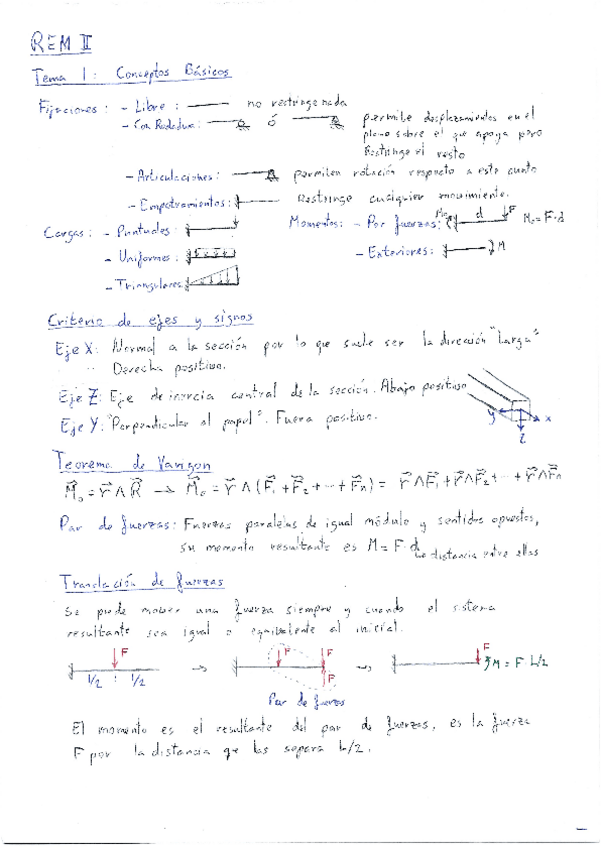 REM II
Tema 1: Conceptos Básicos
Fijaciones: - Libre: no restringe nada
- Con Rodadura: ó permite desplazamientos en el
plano sobre el que apoya pero
Restringe el resto
- Articulaciones: permiten rotación respecto a este punto
- Empotramientos: Restringe cualquier movimiento.
Cargas: - Puntuales: Momentos: - Por fuerzas: d F M₀ = F·d
- Uniformes: - Exteriores: M
- Triangulares:
Criterio de ejes y signos
Eje X: Normal a la sección por lo que suele ser la dirección "larga"
Derecha positivo.
Eje Z: Eje de inercia central de la sección. Abajo positivo
Eje Y: "Perpendicular al papel". Fuera positivo.
y x
z
Teorema de Varigon
M₀ = r ∧ R → M₀ = r ∧ (F₁ + F₂ + ··· + Fn) = r ∧ F₁ + r ∧ F₂ + ··· + r ∧ Fn
Par de fuerzas: Fuerzas paralelas de igual módulo y sentidos opuestos,
su momento resultante es M = F·d distancia entre ellas
Translación de fuerzas
Se puede mover una fuerza siempre y cuando el sistema
resultante sea igual o equivalente al inicial.
F F F F
L/2 L/2 F M = F L/2
Par de fuerzas
El momento es el resultante del par de fuerzas, es la fuerza
F por la distancia que las separa L/2.